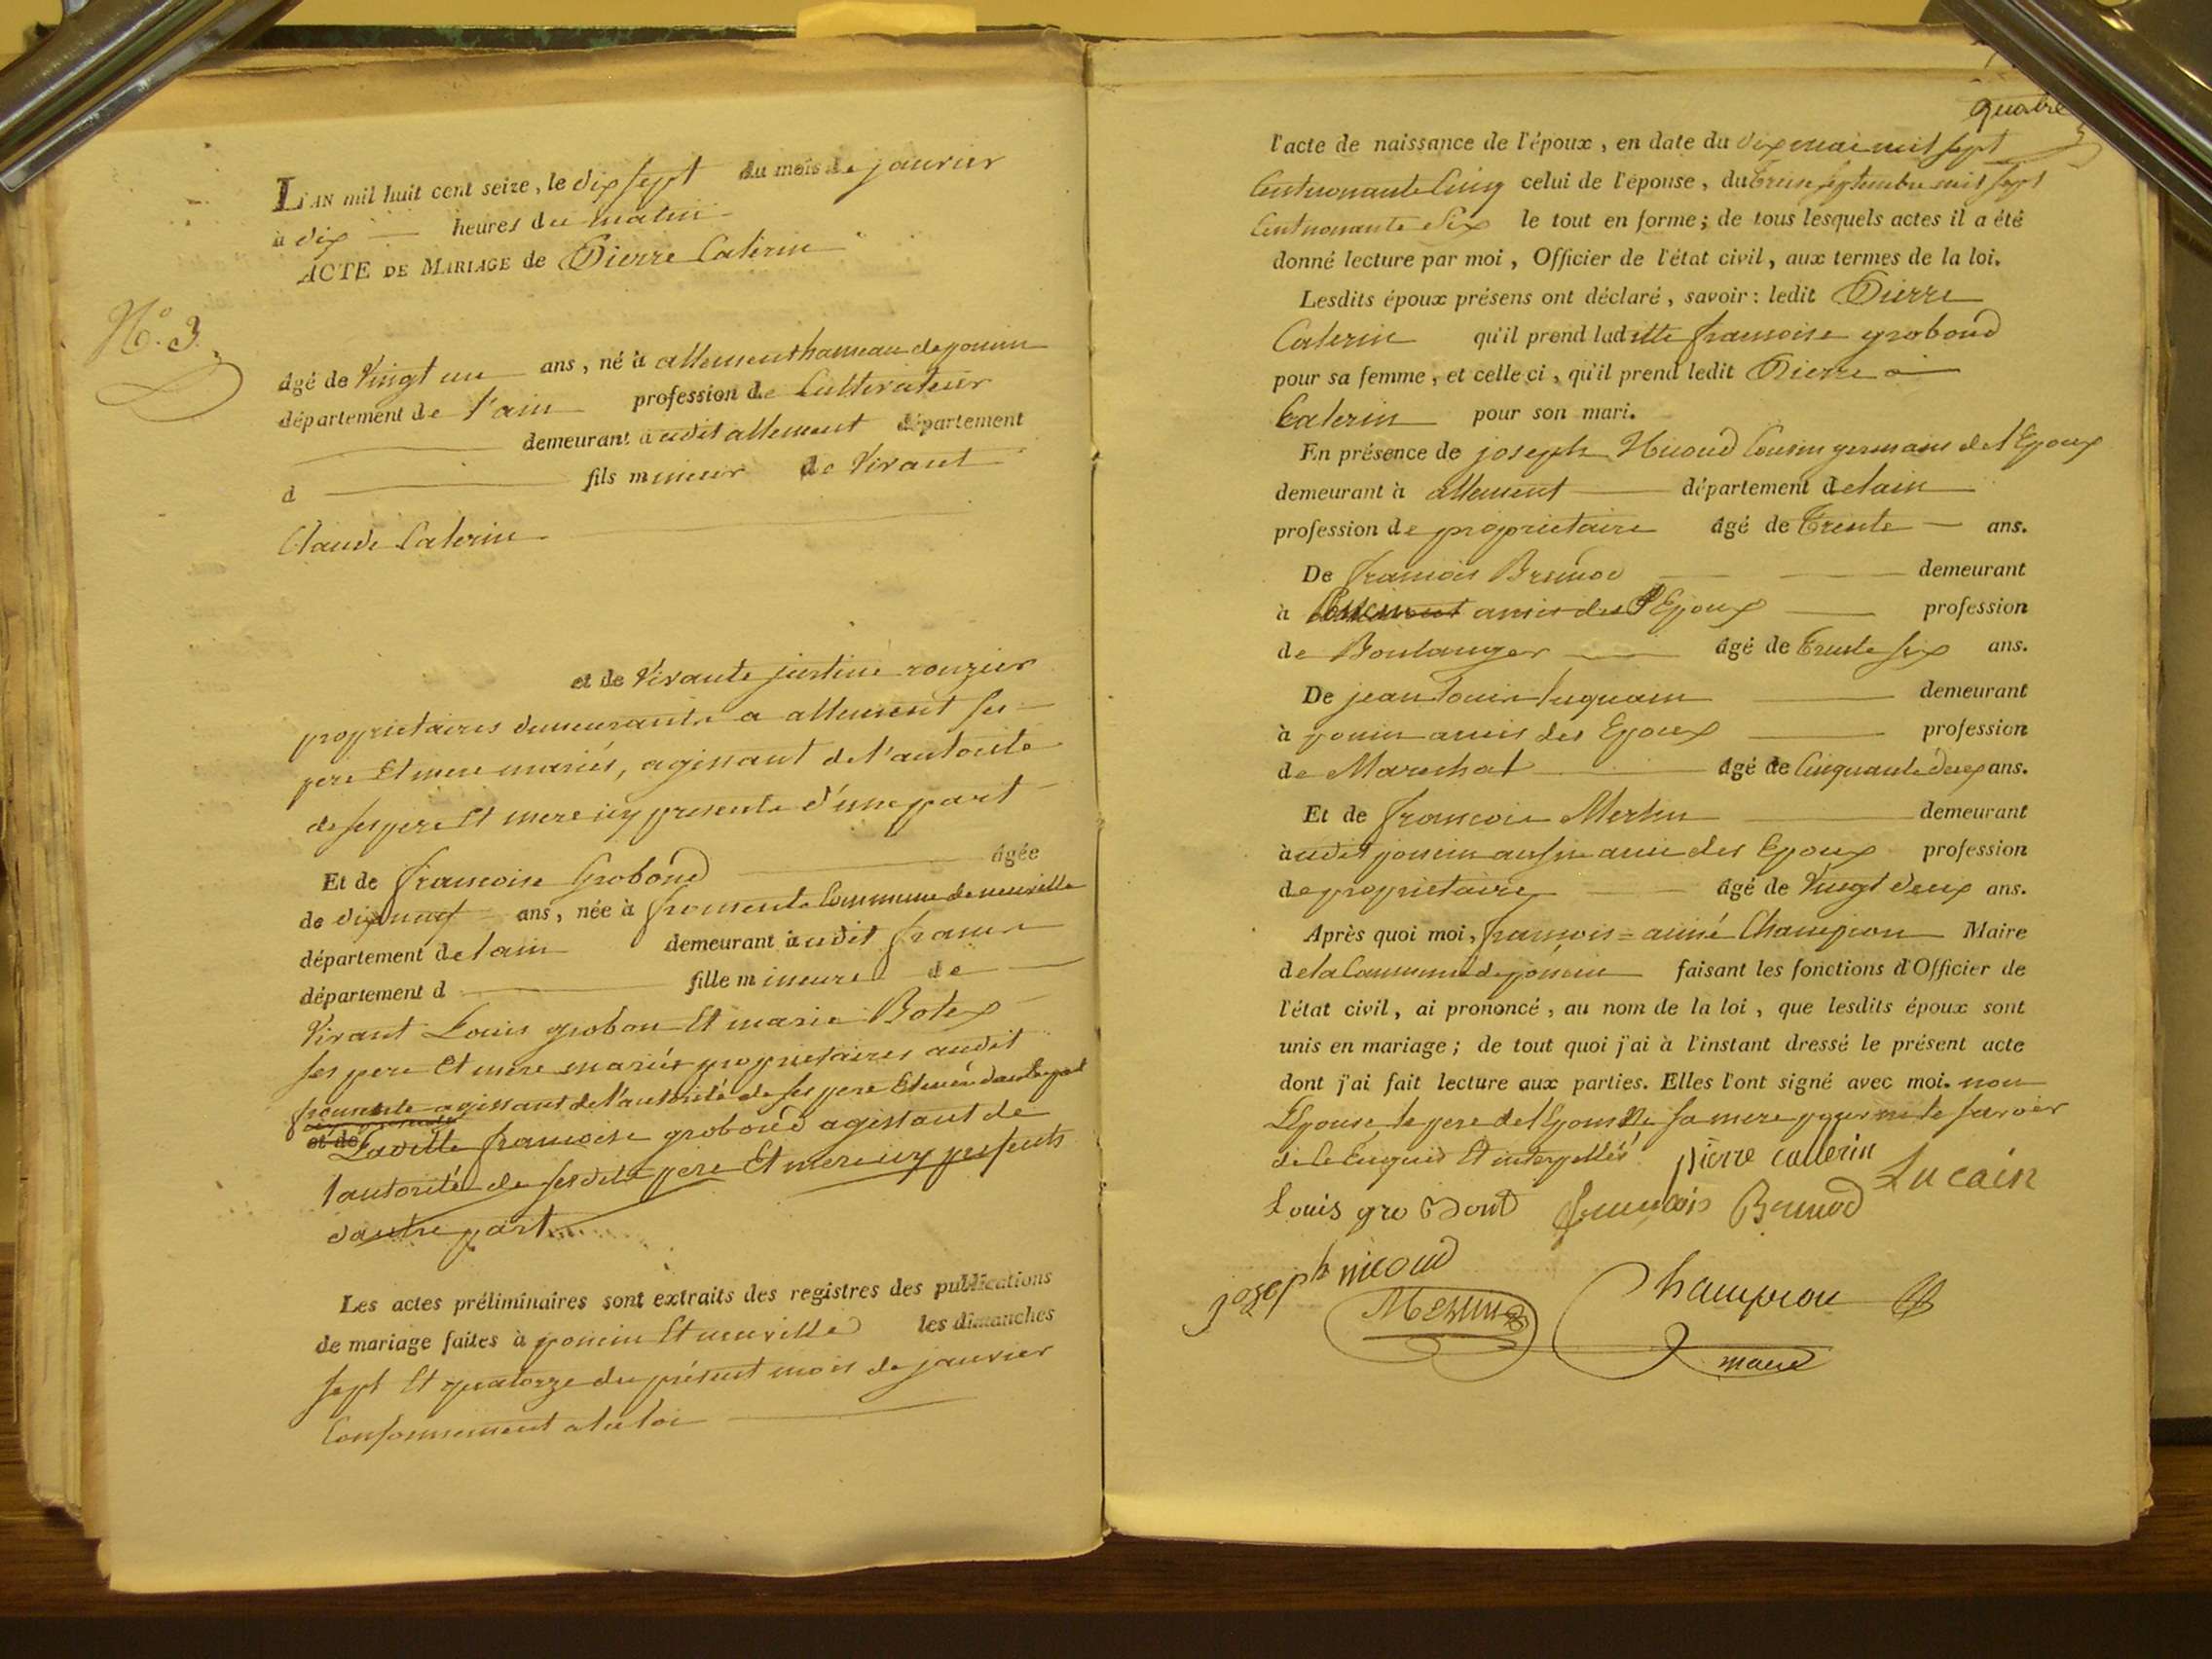 L'AN mil huit cent seize, le dix sept du mois de janvier
à dix heures du matin
ACTE DE MARIAGE de Pierre Caterin
N.º 3.
âgé de Vingt un ans, né à allement hameau de poncin
département de l'ain profession de Cultivateur
demeurant à udit allement département
d fils mineur de Vivant
Claude Caterin
et de Vivante justine rouzier
proprietaires demeurants a allement ses
pere Et mere mariés, agissant de l'autorité
de ses pere Et mere icy presents d'une part
Et de francoise Groboud âgée
de dix neuf ans, née à fromente Commune de neuville
département de lain demeurant audit from
département d fille mineure de
Vivant Louis grobon Et marie Botex
ses pere Et mere mariés proprietaires audit
fromente agissant de l'autorité de ses pere Et mere dautre part
et de Laditte francoise groboud agissant de
l'autorité de ses dits pere Et mere icy presents
dautre part
Les actes préliminaires sont extraits des registres des publications
de mariage faites à poncin Et neuville les dimanches
sept Et quatorze du présent mois de janvier
Conformement a la loi
quatre
l'acte de naissance de l'époux, en date du dix mai mil sept
Cent nonante Cinq celui de l'épouse, du treize septembre mil sept
Cent nonante Six le tout en forme; de tous lesquels actes il a été
donné lecture par moi, Officier de l'état civil, aux termes de la loi.
Lesdits époux présens ont déclaré, savoir: ledit Pierre
Caterin qu'il prend laditte francoise groboud
pour sa femme, et celle ci, qu'il prend ledit Pierre
Caterin pour son mari.
En présence de joseph Nicoud Cousin germain de l'Epoux
demeurant à allement département de lain
profession de proprietaire âgé de Trente ans.
De francois Brunod demeurant
à amis des Epoux profession
de Boulanger âgé de trente six ans.
De jean Louis luquain demeurant
à poncin amis des Epoux profession
de Marechal âgé de Cinquante deux ans.
Et de francois Merlin demeurant
audit poncin aussi amis des Epoux profession
de proprietaire âgé de Vingt deux ans.
Après quoi moi, francois = aimé Champion Maire
de la Commune de poncin faisant les fonctions d'Officier de
l'état civil, ai prononcé, au nom de la loi, que lesdits époux sont
unis en mariage; de tout quoi j'ai à l'instant dressé le présent acte
dont j'ai fait lecture aux parties. Elles l'ont signé avec moi. non
L'Epouse le pere de l'Epoux ni sa mere pour ne le savoir
de ce Enquis Et interpellés pierre catterin
Lucain
Louis gro Bond francois Brunod
joseph nicoud
Merlin
Champion
maire